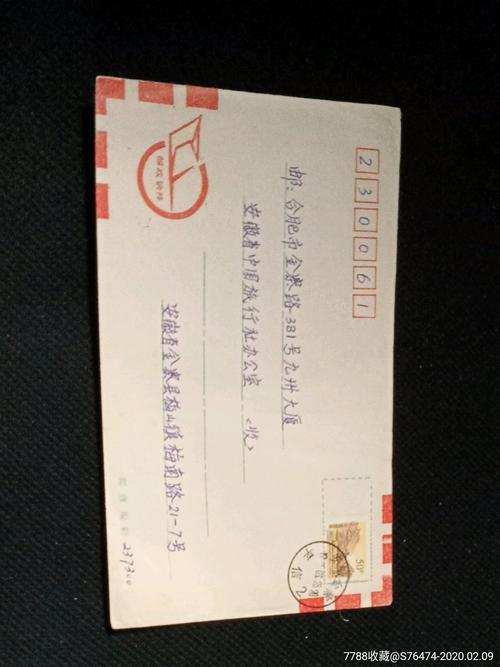 230061
邮:合肥市金寨路381号九州大厦
安徽省中国旅行社办公室 <收>
安徽省金寨县梅山镇梅南路21-7号
237300
邮政快件
50分
7788收藏@S76474-2020.02.09